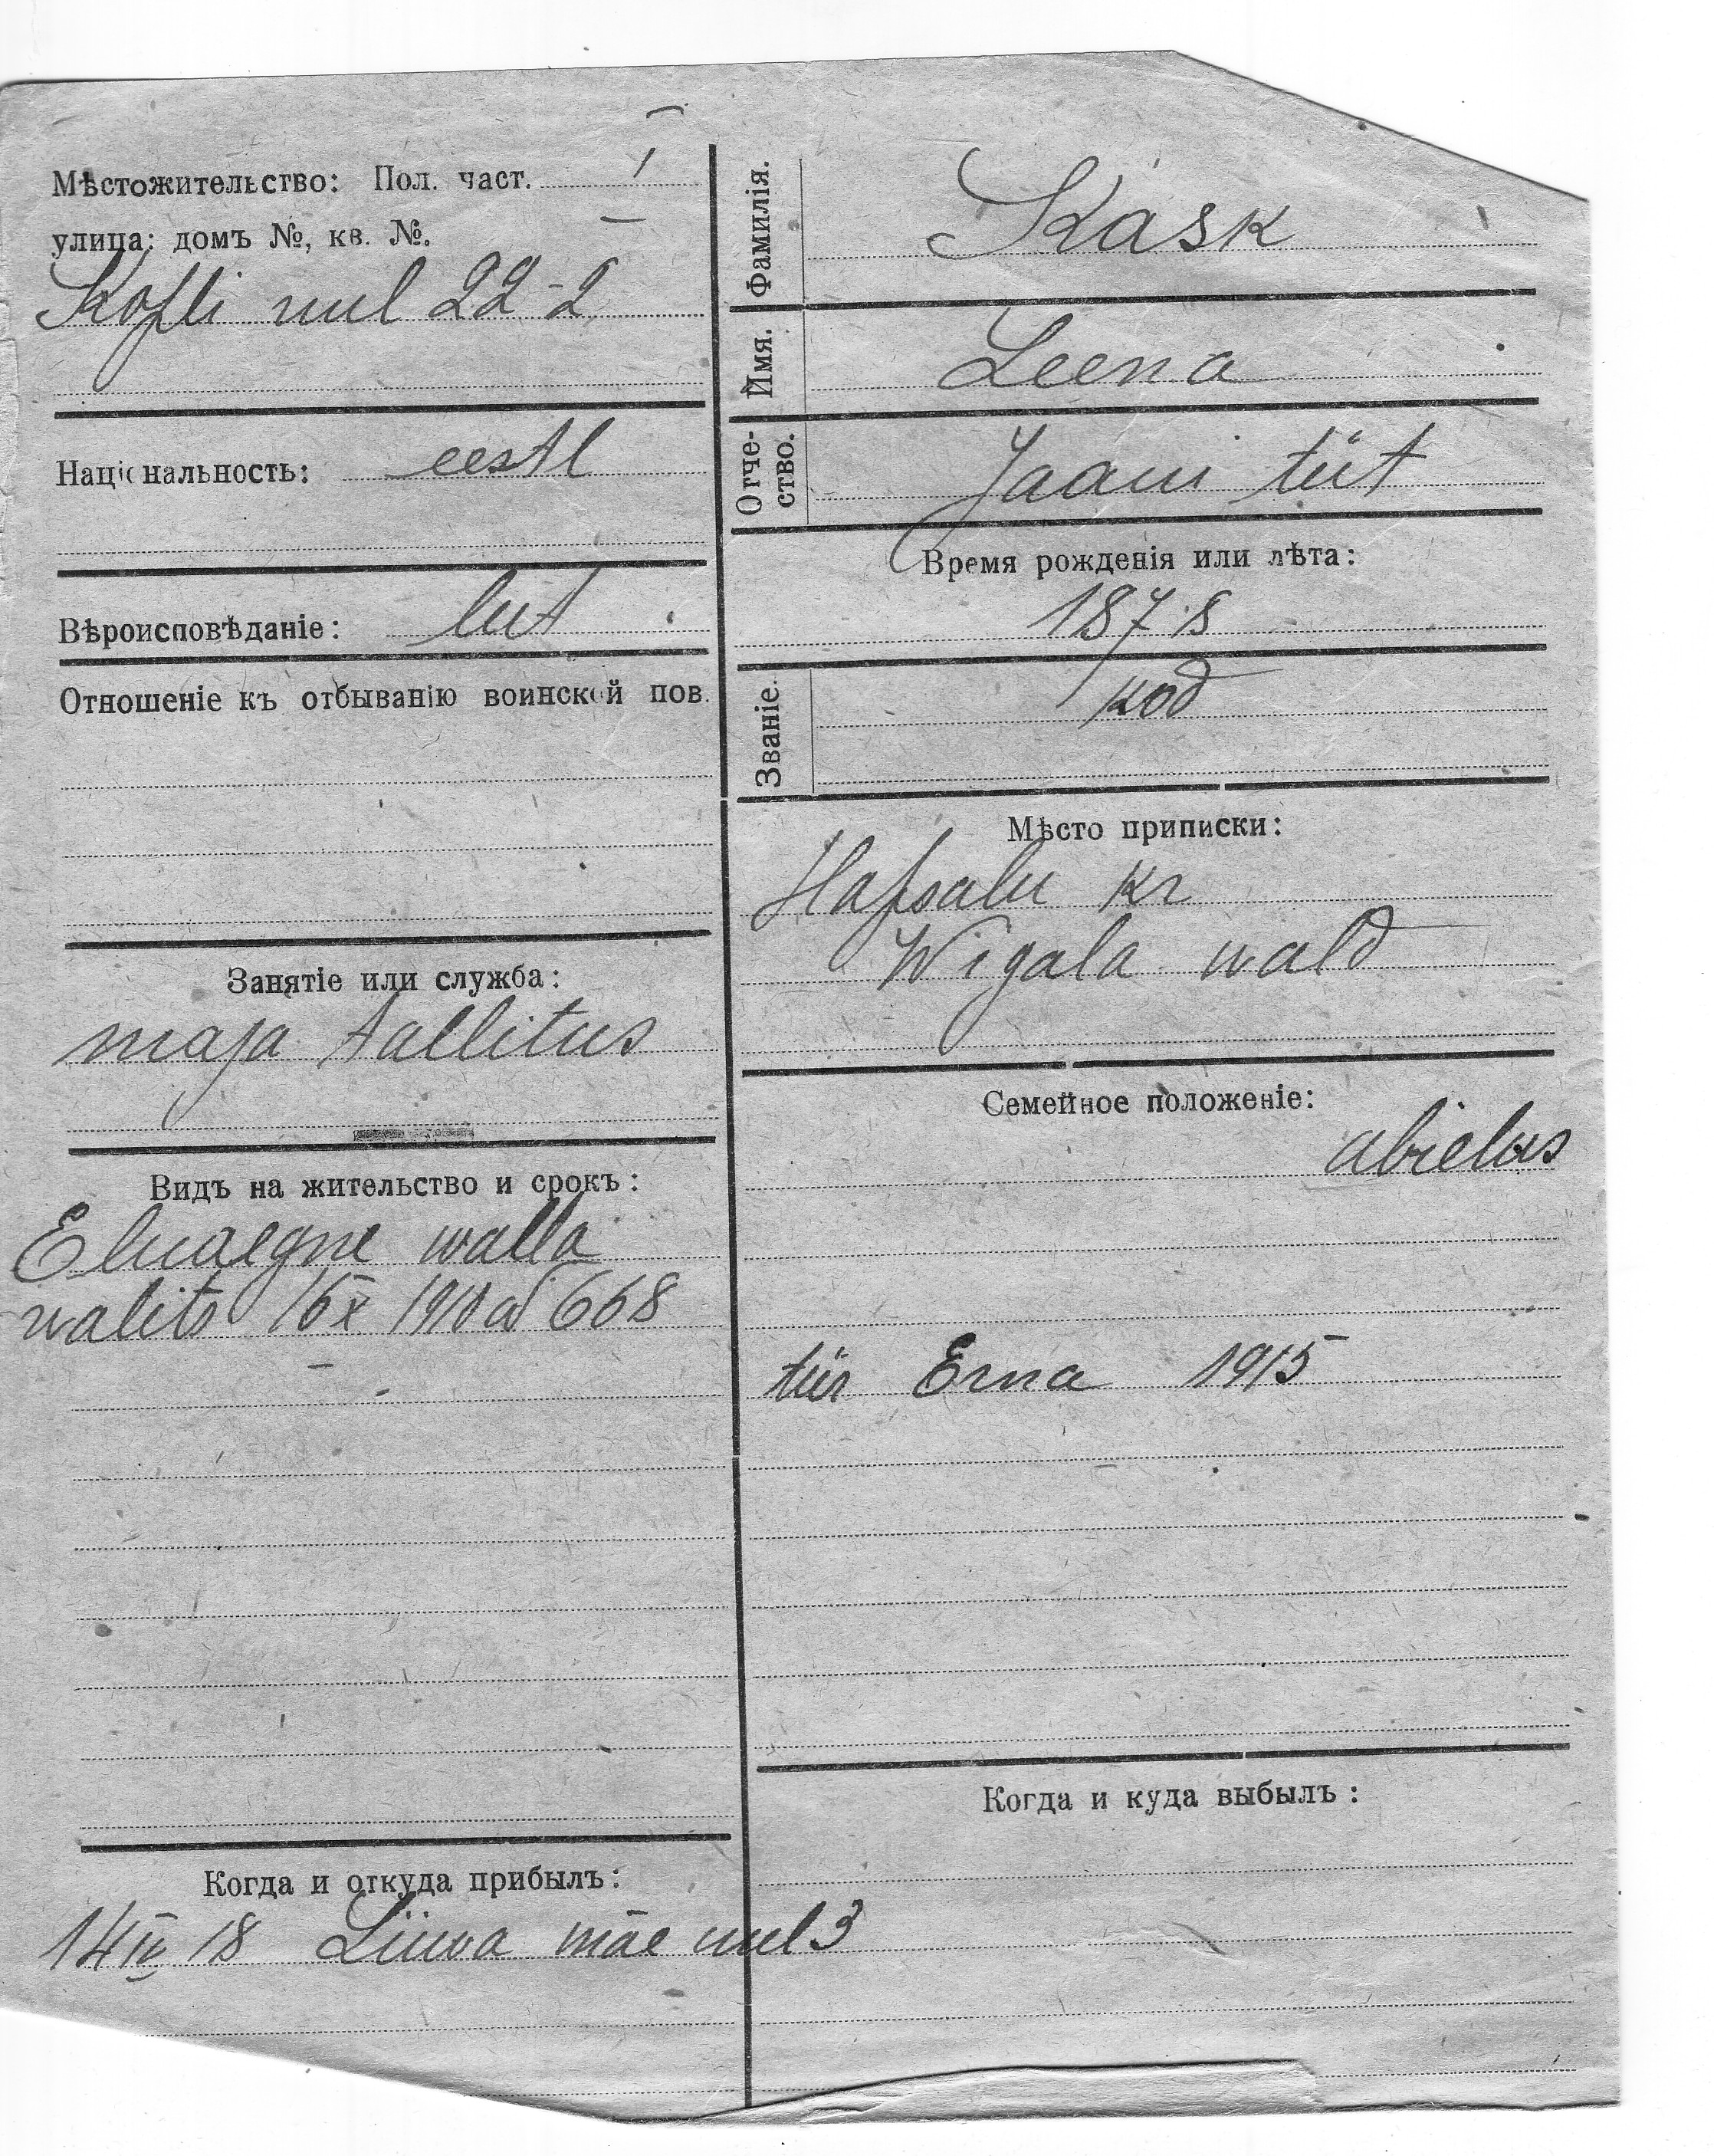 Мѣстожительство: Пол. част. I
улица: домъ №, кв. №.
Kopli uul 22-2
Національность: eestl
Вѣроисповѣданіе: lut
Отношеніе къ отбыванію воинской пов.
Занятіе или служба:
maja tallitus
Видъ на жительство и срокъ:
walla
walits 16 X 1918 668
Когда и откуда прибылъ:
14 IV 18 Liiwa mäe uul 3
Фамилія. Kask
Имя. Leena
Отче-
ство. Jaani tüt
Время рожденія или лѣта:
1878
Званіе. kod
Мѣсто приписки:
Hapsalu kr
Wigala wald
Семейное положеніе:
abielus
tür Erna 1915
Когда и куда выбылъ: